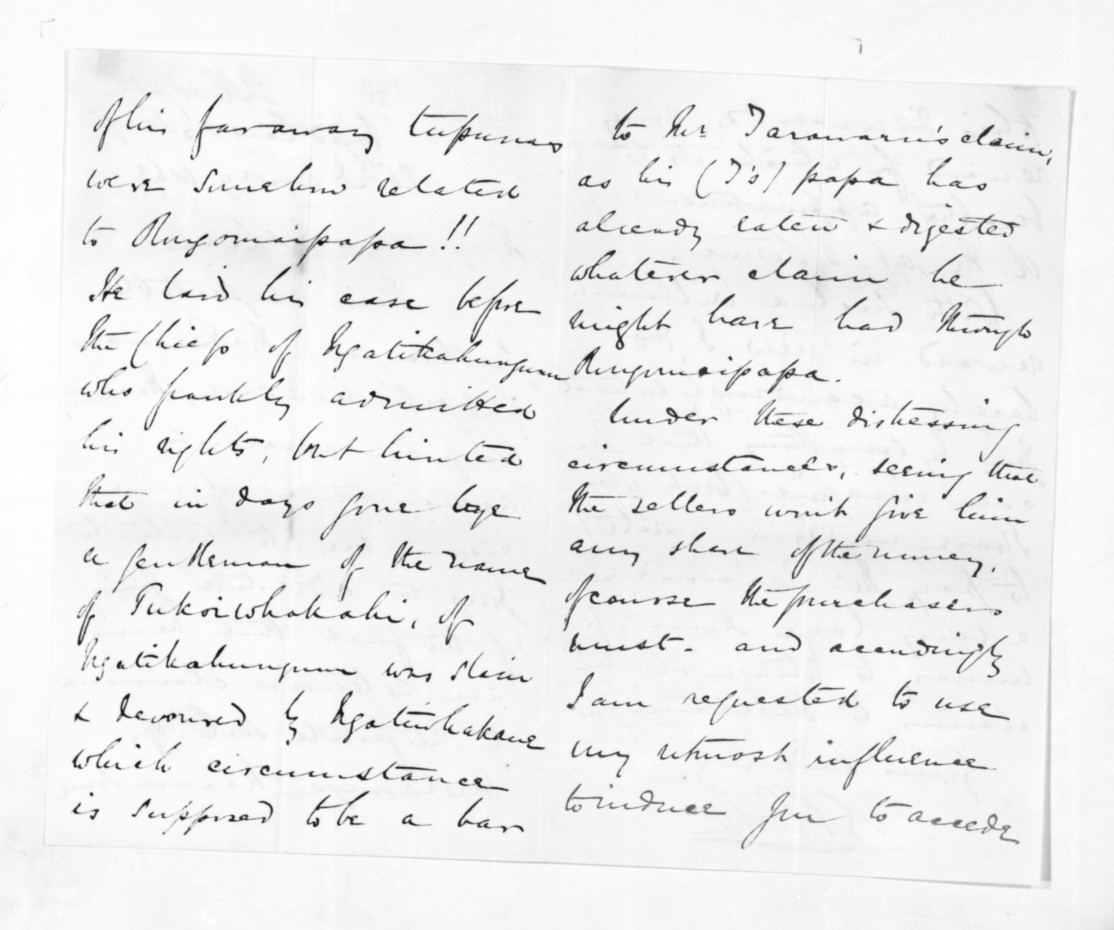 of his faraway tupunas
were somehow related
to Rongomaipapa!!
He laid his case before
the Chiefs of Ngatikahungunu
who frankly admitted
his rights, but hinted
that in days gone bye
a gentleman of the name
of Tukoiwhakahi, of
Ngatikahungunu was slain
& devoured by Ngatiwhakaue
which circumstance
is supposed to be a bar
to Mr Tarawari's claim,
as his (T's) papa has
already eaten & digested
whatever claim he
might have had through
Rongomaipapa.
Under these distressing
circumstances, seeing that
the sellers won't give him
any share of the money,
of course the purchasers
must - and accordingly
I am requested to use
my utmost influence
to induce you to accede